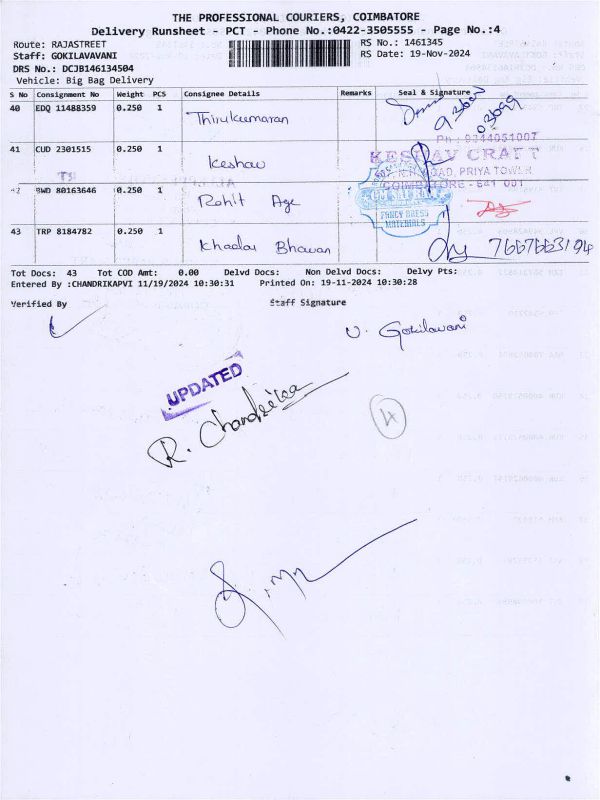 THE PROFESSIONAL COURIERS, COIMBATORE
Delivery Runsheet - PCT - Phone No.:0422-3505555 - Page No.:4
Route: RAJASTREET RS No.: 1461345
Staff: GOKILAVAVANI RS Date: 19-Nov-2024
DRS No.: DCJB146134504
Vehicle: Big Bag Delivery
S No Consignment No Weight PCS Consignee Details Remarks Seal & Signature
40 EDQ 11488359 0.250 1 Thirukumaran
Ph : 9344051007
41 CUD 2301515 0.250 1 Keshav KESHAV CRAFT
ROAD, PRIYA TOWER
COIMBATORE - 641 001
42 BWD 80163646 0.250 1 Rohit Age
FANCY DRESS
MATERIALS
43 TRP 8184782 0.250 1 Khadar Bhavan 7667663104
Tot Docs: 43 Tot COD Amt: 0.00 Delvd Docs: Non Delvd Docs: Delvy Pts:
Entered By :CHANDRIKAPVI 11/19/2024 10:30:31 Printed On: 19-11-2024 10:30:28
Verified By Staff Signature
V. Gokilavani
UPDATED
R. Chandrika
4